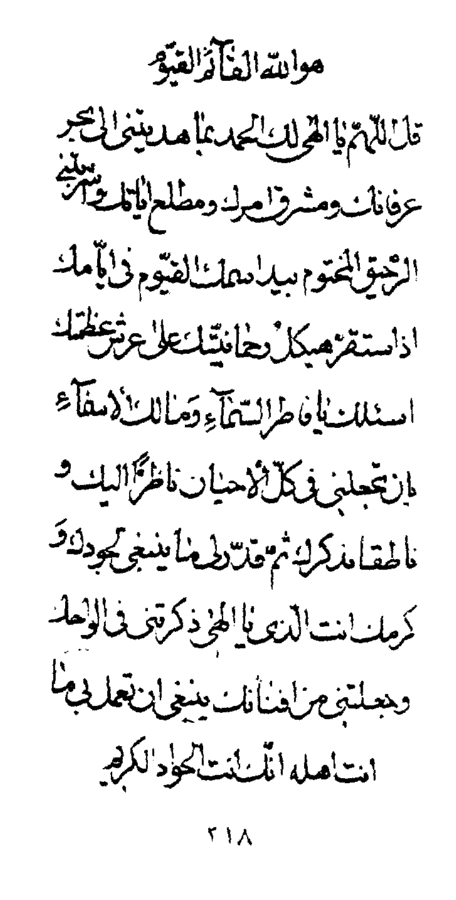 هو الله القآئم القيّوم
قل اللّهمّ يا الهى لك الحمد بما هديتنى الى بحر
عرفانك و مشرق امرك و مطلع اياتك و سقيتنى
الرّحيق المختوم بيد اسمك القيّوم فى ايّامك
اذ استقرّ هيكل رحمانيّتك على عرش عظمتك
اسئلك يا فاطر السّمآء و مالك الاسمآء
بان تجعلنى فى كلّ الاحيان ناظرًا اليك و
ناطقا بذكرك ثمّ قدّر لى ما ينبغى لجودك و
كرمك انت الّذى يا الهى ذكرتنى فى الواحك
و جعلتنى من افنانك ينبغى ان تعمل بى ما
انت اهله انّك انت الجواد الكريم
٢١٨